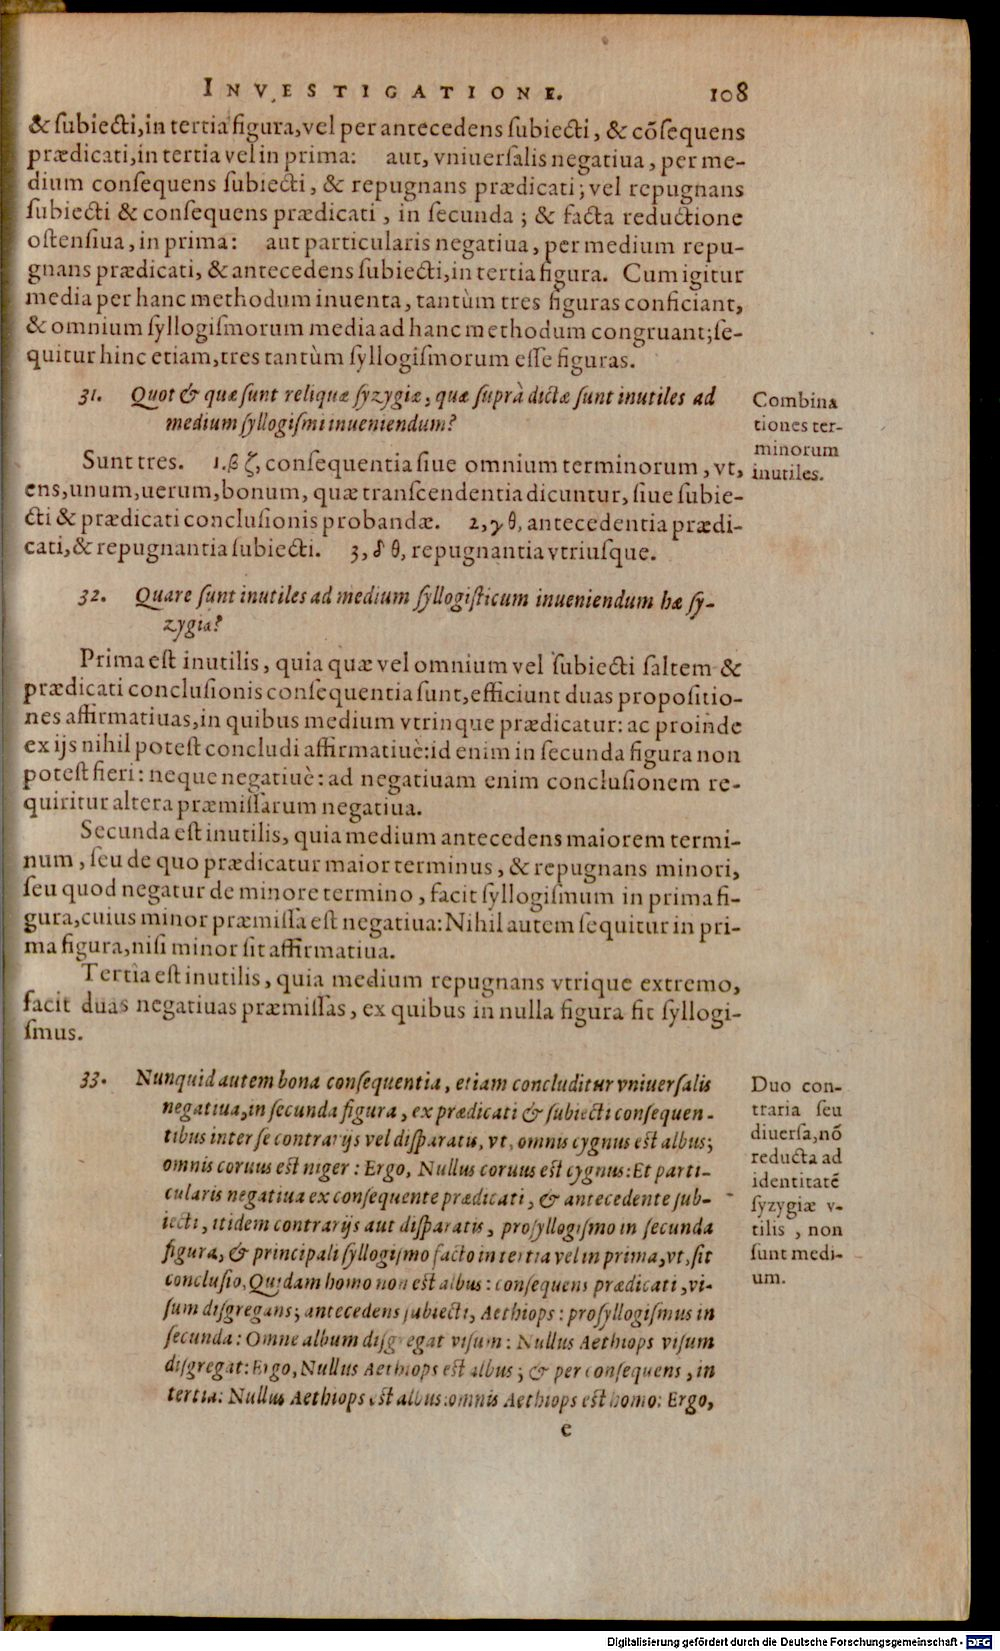 INVESTIGATIONE. 108
& ſubiecti, in tertia figura, vel per antecedens ſubiecti, & cōſequens
prædicati, in tertia vel in prima: aut, vniuerſalis negatiua, per me-
dium conſequens ſubiecti, & repugnans prædicati; vel repugnans
ſubiecti & conſequens prædicati, in ſecunda; & facta reductione
oſtenſiua, in prima: aut particularis negatiua, per medium repu-
gnans prædicati, & antecedens ſubiecti, in tertia figura. Cum igitur
media per hanc methodum inuenta, tantùm tres figuras conficiant,
& omnium ſyllogiſmorum media ad hanc methodum congruant; ſe-
quitur hinc etiam, tres tantùm ſyllogiſmorum eſſe figuras.
31. Quot & quæ ſunt reliquæ ſyzygiæ, quæ ſuprà dictæ ſunt inutiles ad
medium ſyllogiſmi inueniendum?
Combina
tiones ter-
minorum
inutiles.
Sunt tres. 1. β ζ, conſequentia ſiue omnium terminorum, vt,
ens, unum, uerum, bonum, quæ tranſcendentia dicuntur, ſiue ſubie-
cti & prædicati concluſionis probandæ. 2, γ θ, antecedentia prædi-
cati, & repugnantia ſubiecti. 3, δ θ, repugnantia vtriuſque.
32. Quare ſunt inutiles ad medium ſyllogiſticum inueniendum hæ ſy-
zygiæ?
Prima eſt inutilis, quia quæ vel omnium vel ſubiecti ſaltem &
prædicati concluſionis conſequentia ſunt, efficiunt duas propoſitio-
nes affirmatiuas, in quibus medium vtrinque prædicatur: ac proinde
ex ijs nihil poteſt concludi affirmatiuè: id enim in ſecunda figura non
poteſt fieri: neque negatiuè: ad negatiuam enim concluſionem re-
quiritur altera præmiſſarum negatiua.
Secunda eſt inutilis, quia medium antecedens maiorem termi-
num, ſeu de quo prædicatur maior terminus, & repugnans minori,
ſeu quod negatur de minore termino, facit ſyllogiſmum in prima fi-
gura, cuius minor præmiſſa eſt negatiua: Nihil autem ſequitur in pri-
ma figura, niſi minor ſit affirmatiua.
Tertia eſt inutilis, quia medium repugnans vtrique extremo,
facit duas negatiuas præmiſſas, ex quibus in nulla figura fit ſyllogi-
ſmus.
33. Nunquid autem bona conſequentia, etiam concluditur vniuerſalis
negatiua, in ſecunda figura, ex prædicati & ſubiecti conſequen-
tibus inter ſe contrarijs vel diſparatis, vt, omnis cygnus eſt albus;
omnis coruus eſt niger: Ergo, Nullus coruus eſt cygnus: Et parti-
cularis negatiua ex conſequente prædicati, & antecedente ſub-
iecti, itidem contrarijs aut diſparatis, proſyllogiſmo in ſecunda
figura, & principali ſyllogiſmo facto in tertia vel in prima, vt, ſit
concluſio, Quidam homo non eſt albus: conſequens prædicati, vi-
ſum diſgregans; antecedens ſubiecti, Aethiops: proſyllogiſmus in
ſecunda: Omne album diſgregat viſum: Nullus Aethiops viſum
diſgregat: Ergo, Nullus Aethiops eſt albus; & per conſequens, in
tertia: Nullus Aethiops eſt albus: omnis Aethiops eſt homo: Ergo,
Duo con-
traria ſeu
diuerſa, nō
reducta ad
identitatē
ſyzygiæ v-
tilis, non
ſunt medi-
um.
e
Digitalisierung gefördert durch die Deutsche Forschungsgemeinschaft - DFG